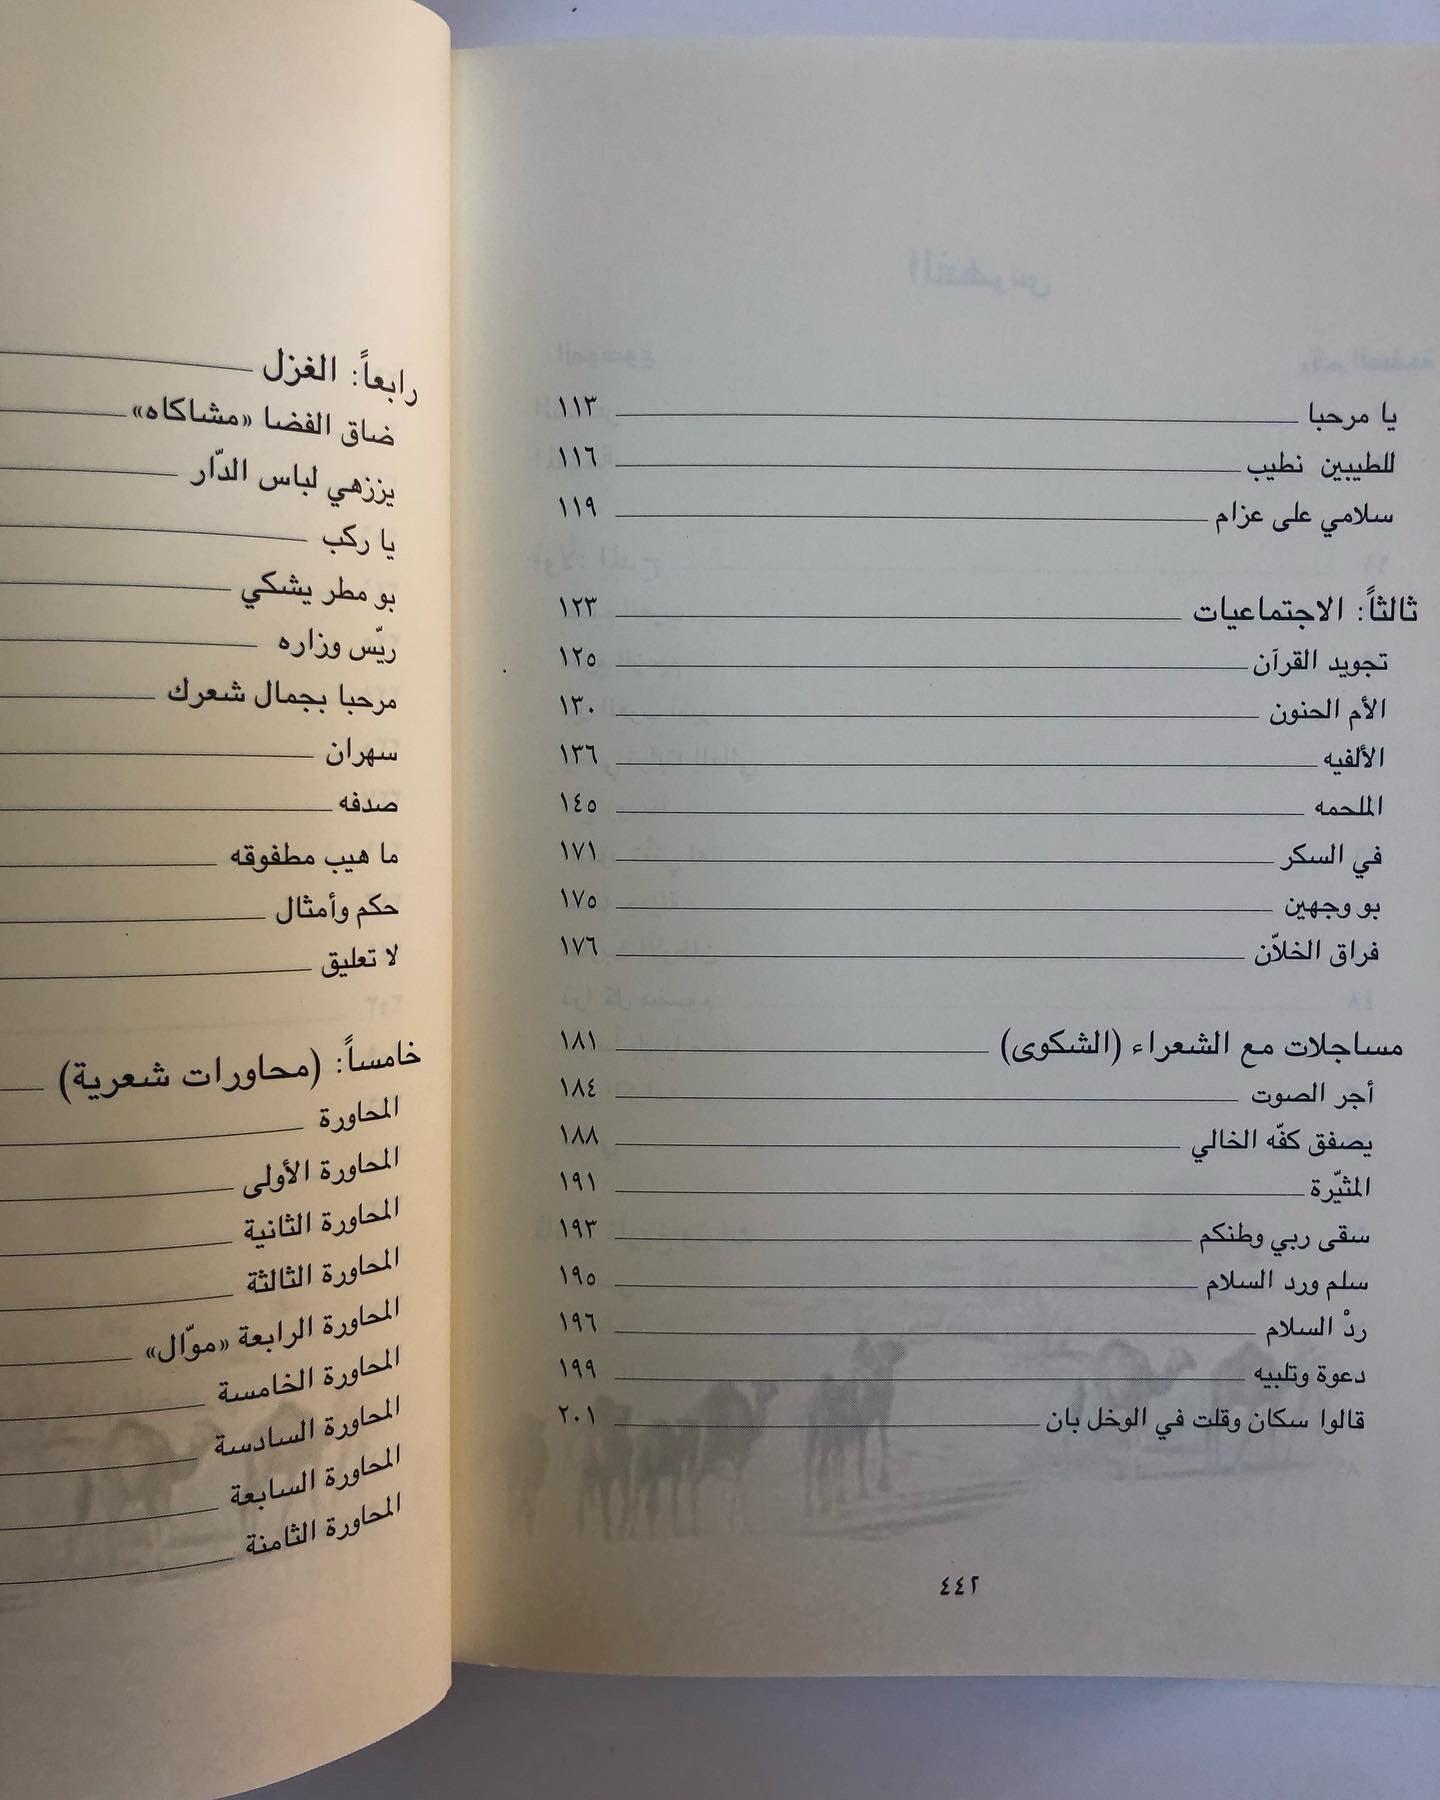 يا مرحبا ١١٣
للطيبين نطيب ١١٦
سلامي على عزام ١١٩
ثالثاً: الاجتماعيات ١٢٣
تجويد القرآن ١٢٥
الأم الحنون ١٣٠
الألفيه ١٣٦
الملحمه ١٤٥
في السكر ١٧١
بو وجهين ١٧٥
فراق الخلاّن ١٧٦
مساجلات مع الشعراء (الشكوى) ١٨١
أجر الصوت ١٨٤
يصفق كفّه الخالي ١٨٨
المثيّرة ١٩١
سقى ربي وطنكم ١٩٣
سلم ورد السلام ١٩٥
ردْ السلام ١٩٦
دعوة وتلبيه ١٩٩
قالوا سكان وقلت في الوخل بان ٢٠١
٤٤٢
رابعاً: الغزل
ضاق الفضا «مشاكاه»
يززهي لباس الدّار
يا ركب
بو مطر يشكي
ريّس وزاره
مرحبا بجمال شعرك
سهران
صدفه
ما هيب مطفوقه
حكم وأمثال
لا تعليق
خامساً: (محاورات شعرية)
المحاورة
المحاورة الأولى
المحاورة الثانية
المحاورة الثالثة
المحاورة الرابعة «موّال»
المحاورة الخامسة
المحاورة السادسة
المحاورة السابعة
المحاورة الثامنة